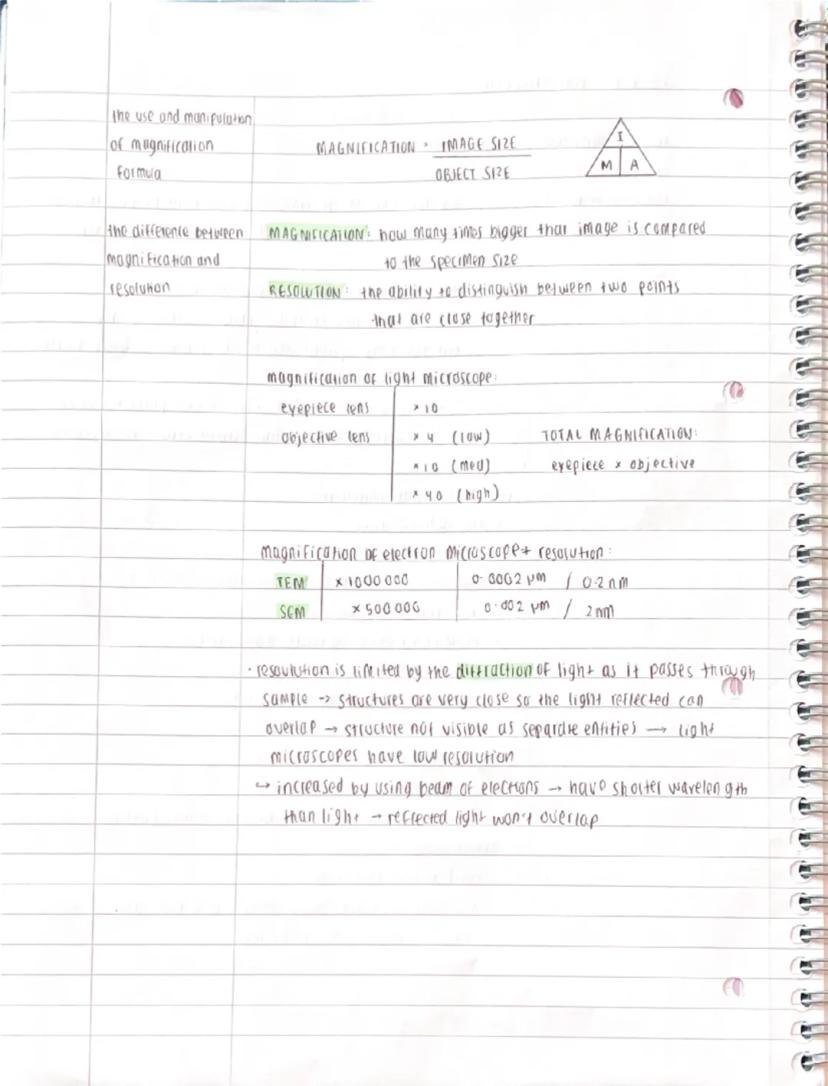 the use and manipulation
of magnification
formula
MAGNIFICATION = IMAGE SIZE
OBJECT SIZE
I
M A
the difference between
magnification and
resolution
MAGNIFICATION: how many times bigger that image is compared
to the specimen size
RESOLUTION: the ability to distinguish between two points
that are close together
magnification of light microscope:
eyepiece lens × 10
objective lens × 4 (low)
× 10 (med)
× 40 (high)
TOTAL MAGNIFICATION:
eyepiece × objective
magnification of electron microscope + resolution:
TEM × 1000 000 0.0002 µm / 0.2 nm
SEM × 500 000 0.002 µm / 2 nm
· resoulution is limited by the diffraction of light as it passes through
sample → structures are very close so the light reflected can
overlap → structure not visible as separate entities → light
microscopes have low resolution
↪ increased by using beam of electrons → have shorter wavelength
than light → reflected light won't overlap